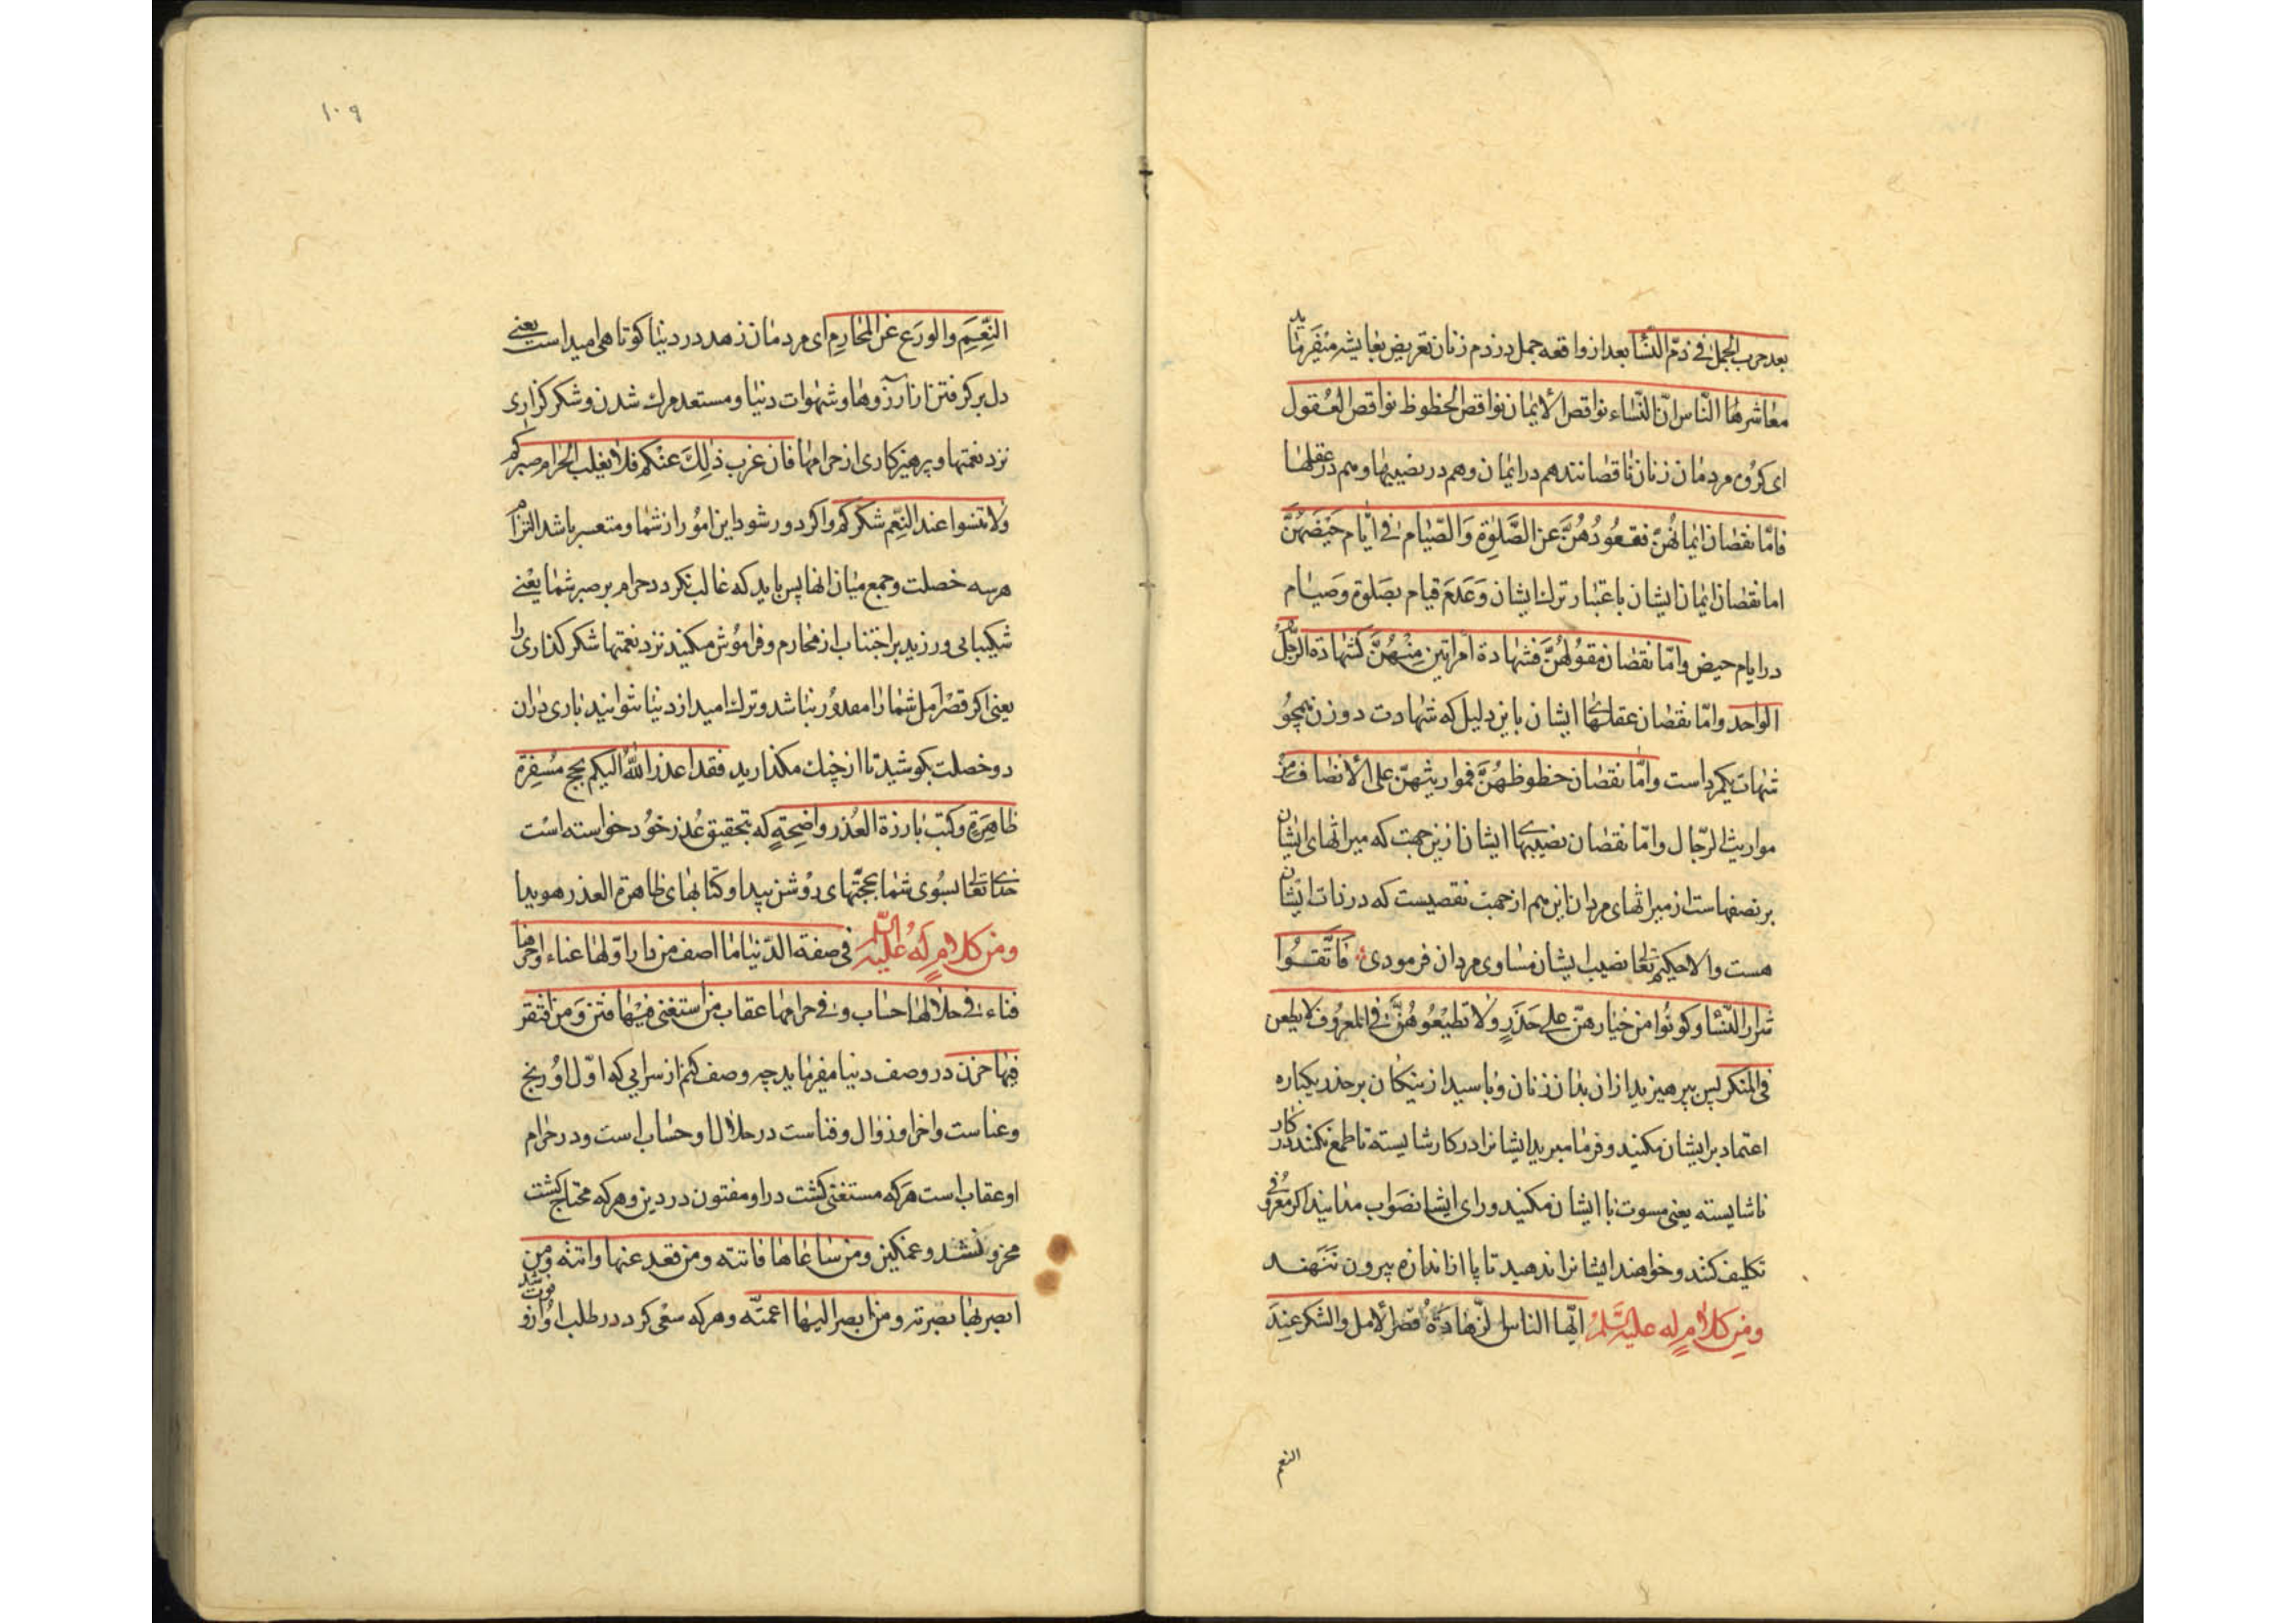 بعد حرب الجمل فی ذمّ النّسا بعد از واقعه جمل در ذم زنان تعریض بعایشه میفرماید
معاشرها النّاس انّ النّساء نواقص الایمان نواقص الحظوظ نواقص العقول
ای کروه مردمان زنان ناقصانند هم در ایمان و هم در نصیبها و هم در عقلها
فامّا نقصان ایمانهنّ فقعودهُنّ عن الصّلوة وَالصّیام فی ایّام حَیْضهنَّ
اما نقصان ایمان ایشان باعتبار ترک ایشان وَعَدَم قیام بصَلوة وَصیام
در ایام حیض وامّا نقصان عقولهُنَّ فشهادة امراتین مِنهُنَّ کشهادة الرَّجُل
الواحد وامّا نقصان عقلهای ایشان باین دلیل که شهادت دوزن همچو
شهات یکمرد است وامّا نقصان حظوظهُنَّ فمواریثهنّ علی الانصاف من
مواریث الرّجال وامّا نقصان نصیبهای ایشان ازین جهت که میراثهای ایشان
بر نصفهاست از میراثهای مردان این هم از جهت نقصیست که در ذات ایشان
هست والا حکیم تعالی نصیب ایشان مساوی مردان فرمودی فَاتَّقوا
شرار النّسا وکونُوا من خیارهنّ علی حَذَرٍ ولا تطیعُوهُنَّ فی المعرُوف لا یطمعن
فی المنکر پس بپرهیزید از ان بدان زنان وباسید از نیکان بر حذر یکباره
اعتماد بر ایشان مکنید و فرمان مبرید ایشانرا در کار شایسته تا طمع نکنند در کار
ناشایسته یعنی مسوت با ایشان مکنید و رای ایشان صَواب مدانید اکر در معروفی
تکلیف کنند و خواهند ایشانرا ندهید تا پا از اندازه بیرون نَنَهند
ومن کلامٍ له علیه السَّلم ایّها الناس الزّهادَةُ قصر الامل والشکر عِندَ
النعم
۱۰۹
النِّعَمِ والورَع عن المحَارِمِ ای مردمان زهد در دنیا کوتاهی امید است یعنی
دل بر کرفتن از ارزوها و شهوات دنیا و مستعد مرک شدن و شکر کزاری
نزد نعمتها و پرهیزکاری از حرامها فان عزب ذلِکَ عنکم فلا یغلب الحَرام صبرکم
ولا تنسوا عند النِّعم شکرکم واکر دور شود این امور از شما و متعسر باشد التزام
هر سه خصلت و جمع میان انها پس باید که غالب نکردد حرام بر صبر شما یعنی
شکیبایی ورزید بر اجتناب از محارم و فراموش مکنید نزد نعمتها شکر کذاری را
یعنی اکر قصر امل شما را مقدور نباشد و ترک امید از دنیا نتوانید باری دران
دو خصلت بکوشید تا از چنک مکذارید فقد اعذر اللهُ الیکم بحجج مُسْفِرة
ظاهِرَة وکتُبٍ بارزة العُذر واضِحَةٍ که بتحقیق عُذر خُود خواسته است
خدای تعالی بسُوی شما بحجّتهای روُشن پیدا و کتابهای ظاهرة العذر هویدا
ومن کلامٍ لَهُ علیه السّلم فی صفة الدّنیا ما اصف من دار اوّلها عناء واخرها
فناء فی حلالها حساب وفی حرامها عقاب من استغنی فیها فتن وَمن افتقر
فیها حزن در وصف دنیا میفرماید چه وصف کنم از سرایی که اوّل اوُ رنج
وعناست واخر او زوال و فناست در حلال او حساب است و در حرام
او عقاب است هر که مستغنی کشت در او مفتون در دین و هر که محتاج کشت
محزون شد و غمکین ومن ساعاها فاتته ومن قعد عنها واتته ومن
ابصر بها بصرته ومن ابصر الیها اعمته و هر که سعی کرد در طلب او ازو فوت شد